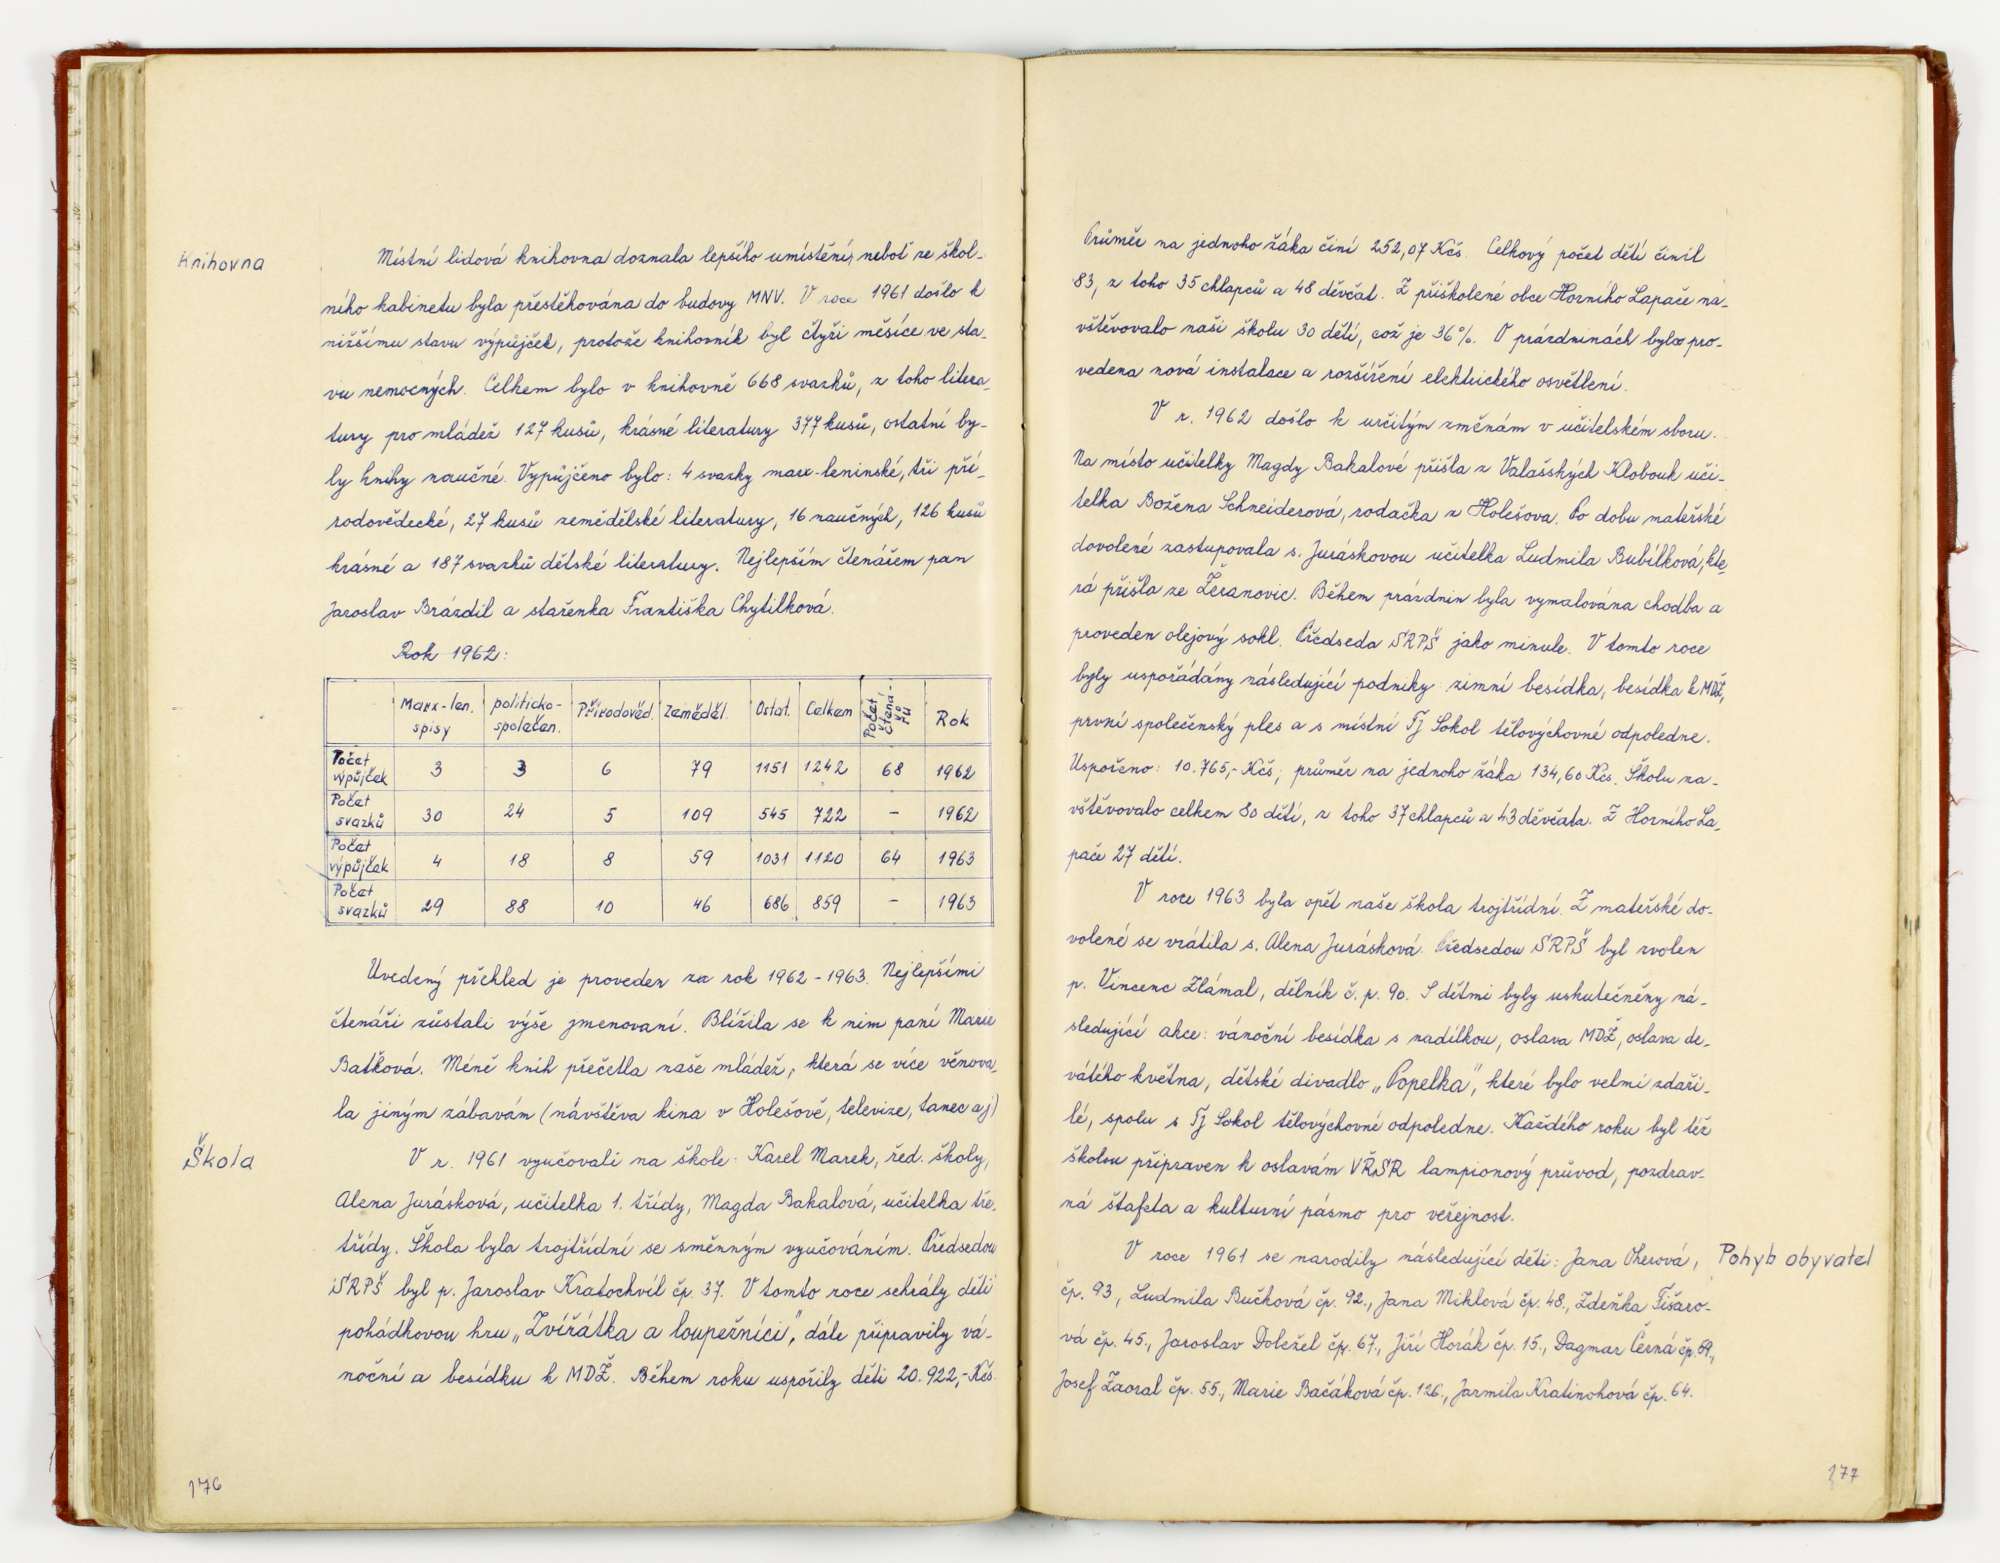 Knihovna
Místní lidová knihovna doznala lepšího umístění, neboť ze škol-
ního kabinetu byla přestěhována do budovy MNV. V roce 1961 došlo k
nižšímu stavu výpůjček, protože knihovník byl čtyři měsíce ve sta-
vu nemocných. Celkem bylo v knihovně 668 svazků, z toho litera-
tury pro mládež 127 kusů, krásné literatury 377 kusů, ostatní by-
ly knihy naučné. Vypůjčeno bylo: 4 svazky marx-leninské, tři pří-
rodovědecké, 27 kusů zemědělské literatury, 16 naučných, 126 kusů
krásné a 187 svazků dětské literatury. Nejlepším čtenářem pan
Jaroslav Brázdil a stařenka Františka Chytilková.
Rok 1962:
Marx-len. spisy politicko-společen. Přírodověd. Zeměděl. Ostat. Celkem Počet čtenářů Rok
Počet výpůjček 3 3 6 79 1151 1242 68 1962
Počet svazků 30 24 5 109 545 722 – 1962
Počet výpůjček 4 18 8 59 1031 1120 64 1963
Počet svazků 29 88 10 46 686 859 – 1963
Uvedený přehled je proveden za rok 1962-1963. Nejlepšími
čtenáři zůstali výše jmenovaní. Blížila se k nim paní Marie
Baťková. Méně knih přečetla naše mládež, která se více věnova-
la jiným zábavám (návštěva kina v Holešově, televize, tanec aj)
Škola
V r. 1961 vyučovali na škole: Karel Marek, řed. školy,
Alena Jurásková, učitelka 1. třídy, Magda Bakalová, učitelka tře.
třídy. Škola byla trojtřídní se směnným vyučováním. Předsedou
SRPŠ byl p. Jaroslav Kratochvíl čp. 37. V tomto roce sehrály děti
pohádkovou hru „Zvířátka a loupežníci", dále připravily vá-
noční a besídku k MDŽ. Během roku uspořily děti 20.922,- Kčs.
176
Průměr na jednoho žáka činí 252,07 Kčs. Celkový počet dětí činil
83, z toho 35 chlapců a 48 děvčat. Z přiškolené obce Horního Lapače na-
vštěvovalo naši školu 30 dětí, což je 36%. O prázdninách byla pro-
vedena nová instalace a rozšíření elektrického osvětlení.
V r. 1962 došlo k určitým změnám v učitelském sboru.
Na místo učitelky Magdy Bakalové přišla z Valašských Klobouk uči-
telka Božena Schneiderová, rodačka z Holešova. Po dobu mateřské
dovolené zastupovala s. Juráskovou učitelka Ludmila Bubílková, kte-
rá přišla ze Žeranovic. Během prázdnin byla vymalována chodba a
proveden olejový sokl. Předseda SRPŠ jako minule. V tomto roce
byly uspořádány následující podniky zimní besídka, besídka k MDŽ,
první společenský ples a s místní Tj Sokol tělovýchovné odpoledne.
Uspořeno: 10.765,- Kčs, průměr na jednoho žáka 134,60 Kčs. Školu na-
vštěvovalo celkem 80 dětí, z toho 37 chlapců a 43 děvčata. Z Horního La-
pače 27 dětí.
V roce 1963 byla opět naše škola trojtřídní. Z mateřské do-
volené se vrátila s. Alena Jurásková. Předsedou SRPŠ byl zvolen
p. Vincenc Zlámal, dělník č. p. 90. S dětmi byly uskutečněny ná-
sledující akce: vánoční besídka s nadílkou, oslava MDŽ, oslava de-
vátého května, dětské divadlo „Popelka", které bylo velmi zdaři-
lé, spolu s Tj Sokol tělovýchovné odpoledne. Každého roku byl též
školou připraven k oslavám VŘSR lampionový průvod, pozdrav-
ná štafeta a kulturní pásmo pro veřejnost.
V roce 1961 se narodily následující děti: Jana Oherová,
Pohyb obyvatel
čp. 93, Ludmila Bučková čp. 92., Jana Miklová čp. 48., Zdeňka Fišaro-
vá čp. 45., Jaroslav Doležel čp. 67., Jiří Horák čp. 15., Dagmar Černá čp. 59.,
Josef Zaoral čp. 55., Marie Bačáková čp. 126., Jarmila Kratinohová čp. 64.
177